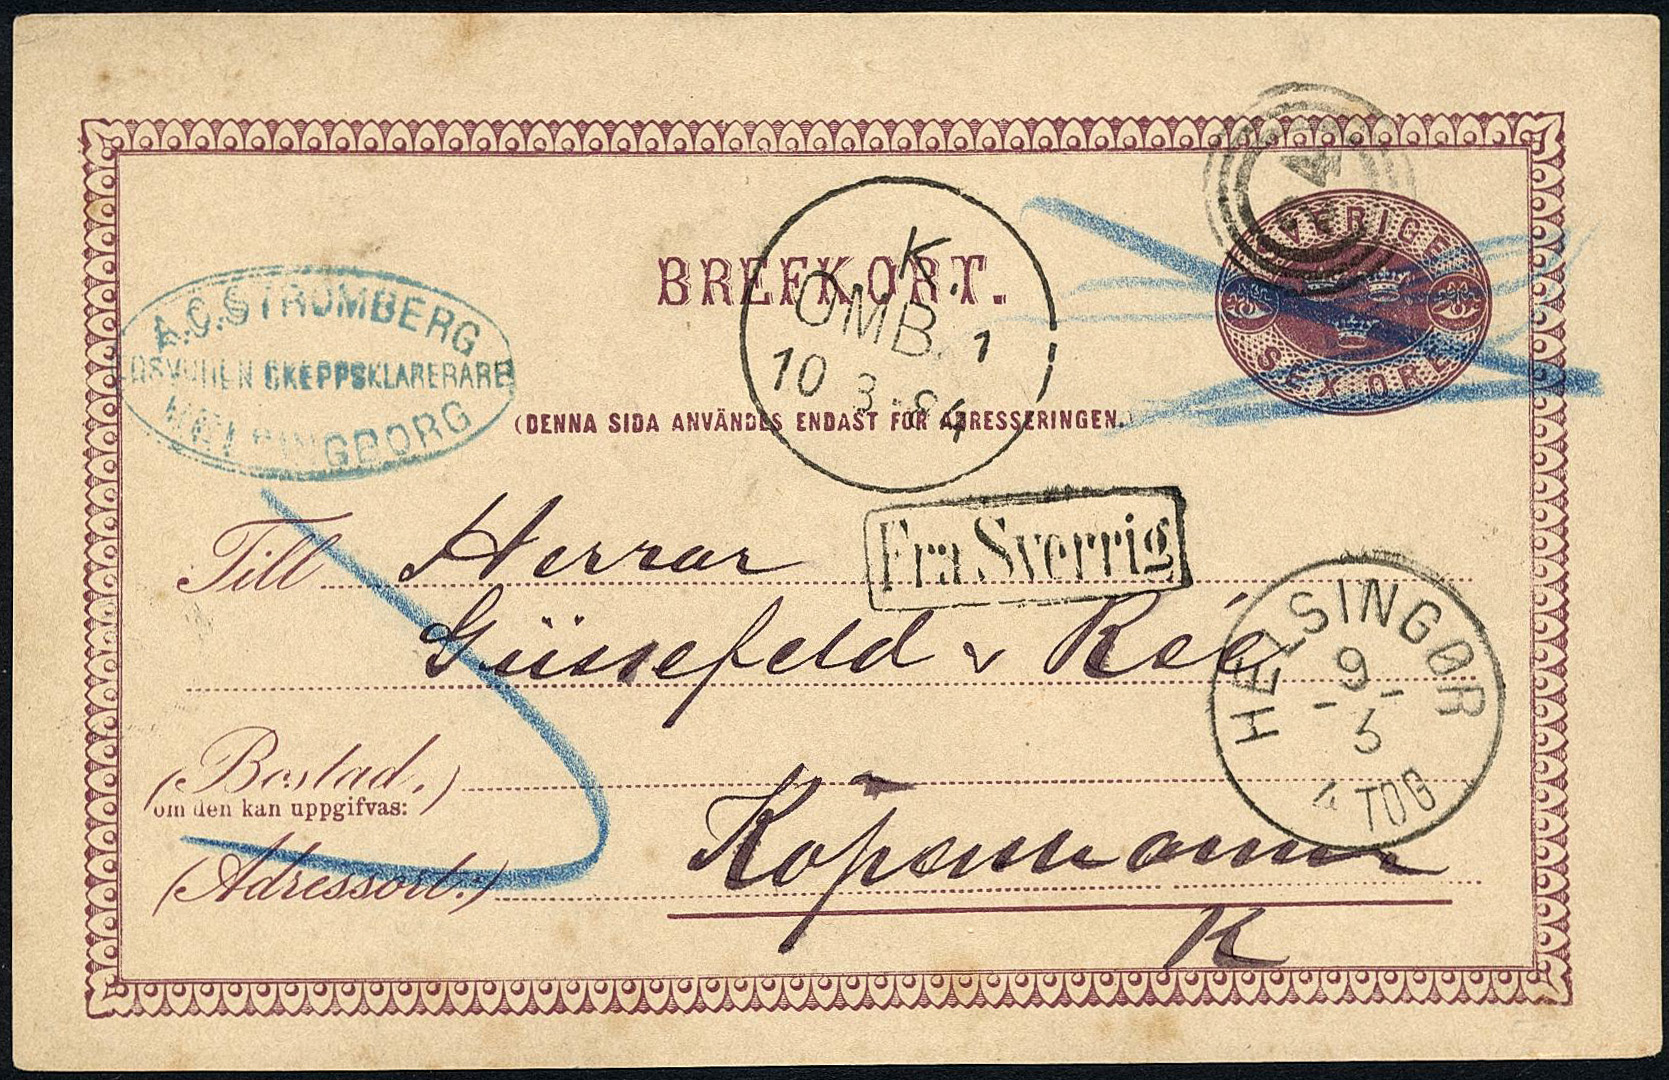 A.C. STRÖMBERG
SKEPPSKLARERARE
HELSINGBORG
BREFKORT.
K.
OMB. 1
10 3 84
SVERIGE
SEX ÖRE
(DENNA SIDA ANVÄNDES ENDAST FÖR ADRESSERINGEN.
Fra Sverrig
Till Herrar
Güssefeld & Reé
HELSINGØR
9
5
4 TOG
(Bostad.)
om den kan uppgifvas:
(Adressort:)
Köpenhamn
K